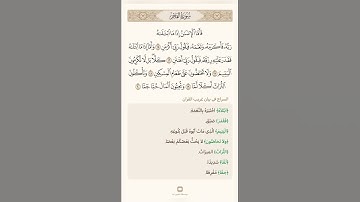 سُورَةُ الفَجْرِ
فَأَمَّا ٱلْإِنسَٰنُ إِذَا مَا ٱبْتَلَىٰهُ
رَبُّهُۥ فَأَكْرَمَهُۥ وَنَعَّمَهُۥ فَيَقُولُ رَبِّىٓ أَكْرَمَنِ ۝ وَأَمَّآ إِذَا مَا ٱبْتَلَىٰهُ
فَقَدَرَ عَلَيْهِ رِزْقَهُۥ فَيَقُولُ رَبِّىٓ أَهَٰنَنِ ۝ كَلَّا ۖ بَل لَّا تُكْرِمُونَ
ٱلْيَتِيمَ ۝ وَلَا تَحَٰٓضُّونَ عَلَىٰ طَعَامِ ٱلْمِسْكِينِ ۝ وَتَأْكُلُونَ
ٱلتُّرَاثَ أَكْلًا لَّمًّا ۝ وَتُحِبُّونَ ٱلْمَالَ حُبًّا جَمًّا ۝
السراج في بيان غريب القرآن
﴿ابْتَلَاهُ﴾ اخْتَبَرَهُ بِالنِّعْمَةِ.
﴿فَقَدَرَ﴾ ضَيَّقَ.
﴿الْيَتِيمَ﴾ الَّذِي مَاتَ أَبُوهُ قَبْلَ بُلُوغِهِ.
﴿وَلَا تَحَاضُّونَ﴾ لَا يَحُثُّ بَعْضُكُمْ بَعْضًا.
﴿التُّرَاثَ﴾ الْمِيرَاثَ.
﴿لَمًّا﴾ شَدِيدًا.
﴿جَمًّا﴾ مُفْرِطًا.